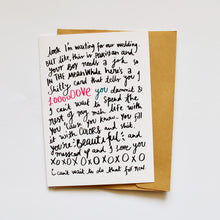 Look I'm waiting for our wedding
but like, this is Pakistan and
your Boy needs a job so
IN THE MEANWHILE here's a
shitty card that tells you I
LOOOOOOVE you dammit &
I can't wait to spend the
rest of my meh life with
you when you know. You fill
it with COLORS and shit.
you're BEAUTIFUL: and
I messed up and I love you
XOXOXOXOXOXOXOXO
i can't wait to do that for real